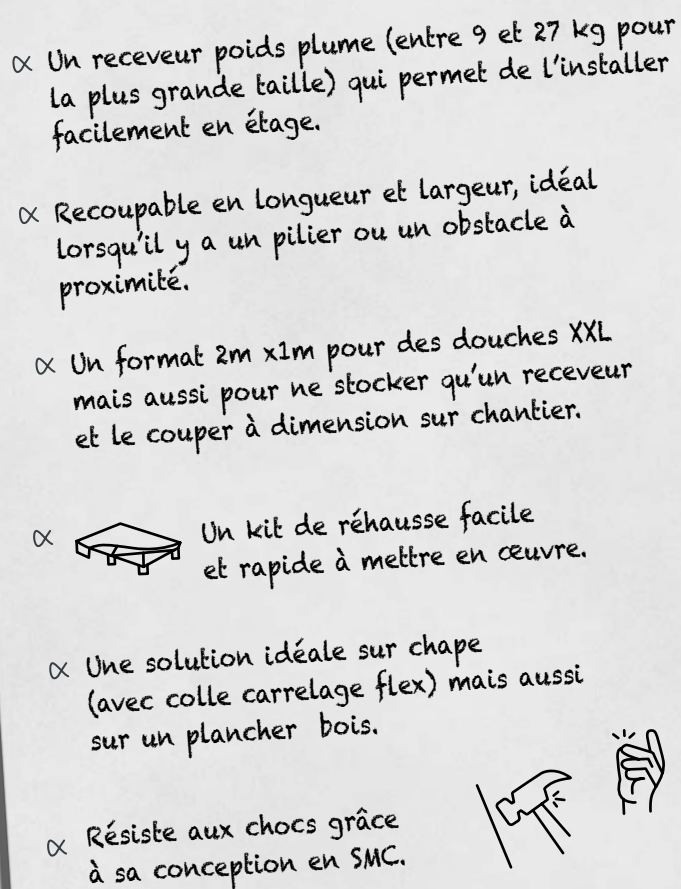 ∝ Un receveur poids plume (entre 9 et 27 kg pour
la plus grande taille) qui permet de l'installer
facilement en étage.
∝ Recoupable en longueur et largeur, idéal
lorsqu'il y a un pilier ou un obstacle à
proximité.
∝ Un format 2m x1m pour des douches XXL
mais aussi pour ne stocker qu'un receveur
et le couper à dimension sur chantier.
∝ Un kit de réhausse facile
et rapide à mettre en œuvre.
∝ Une solution idéale sur chape
(avec colle carrelage flex) mais aussi
sur un plancher bois.
∝ Résiste aux chocs grâce
à sa conception en SMC.